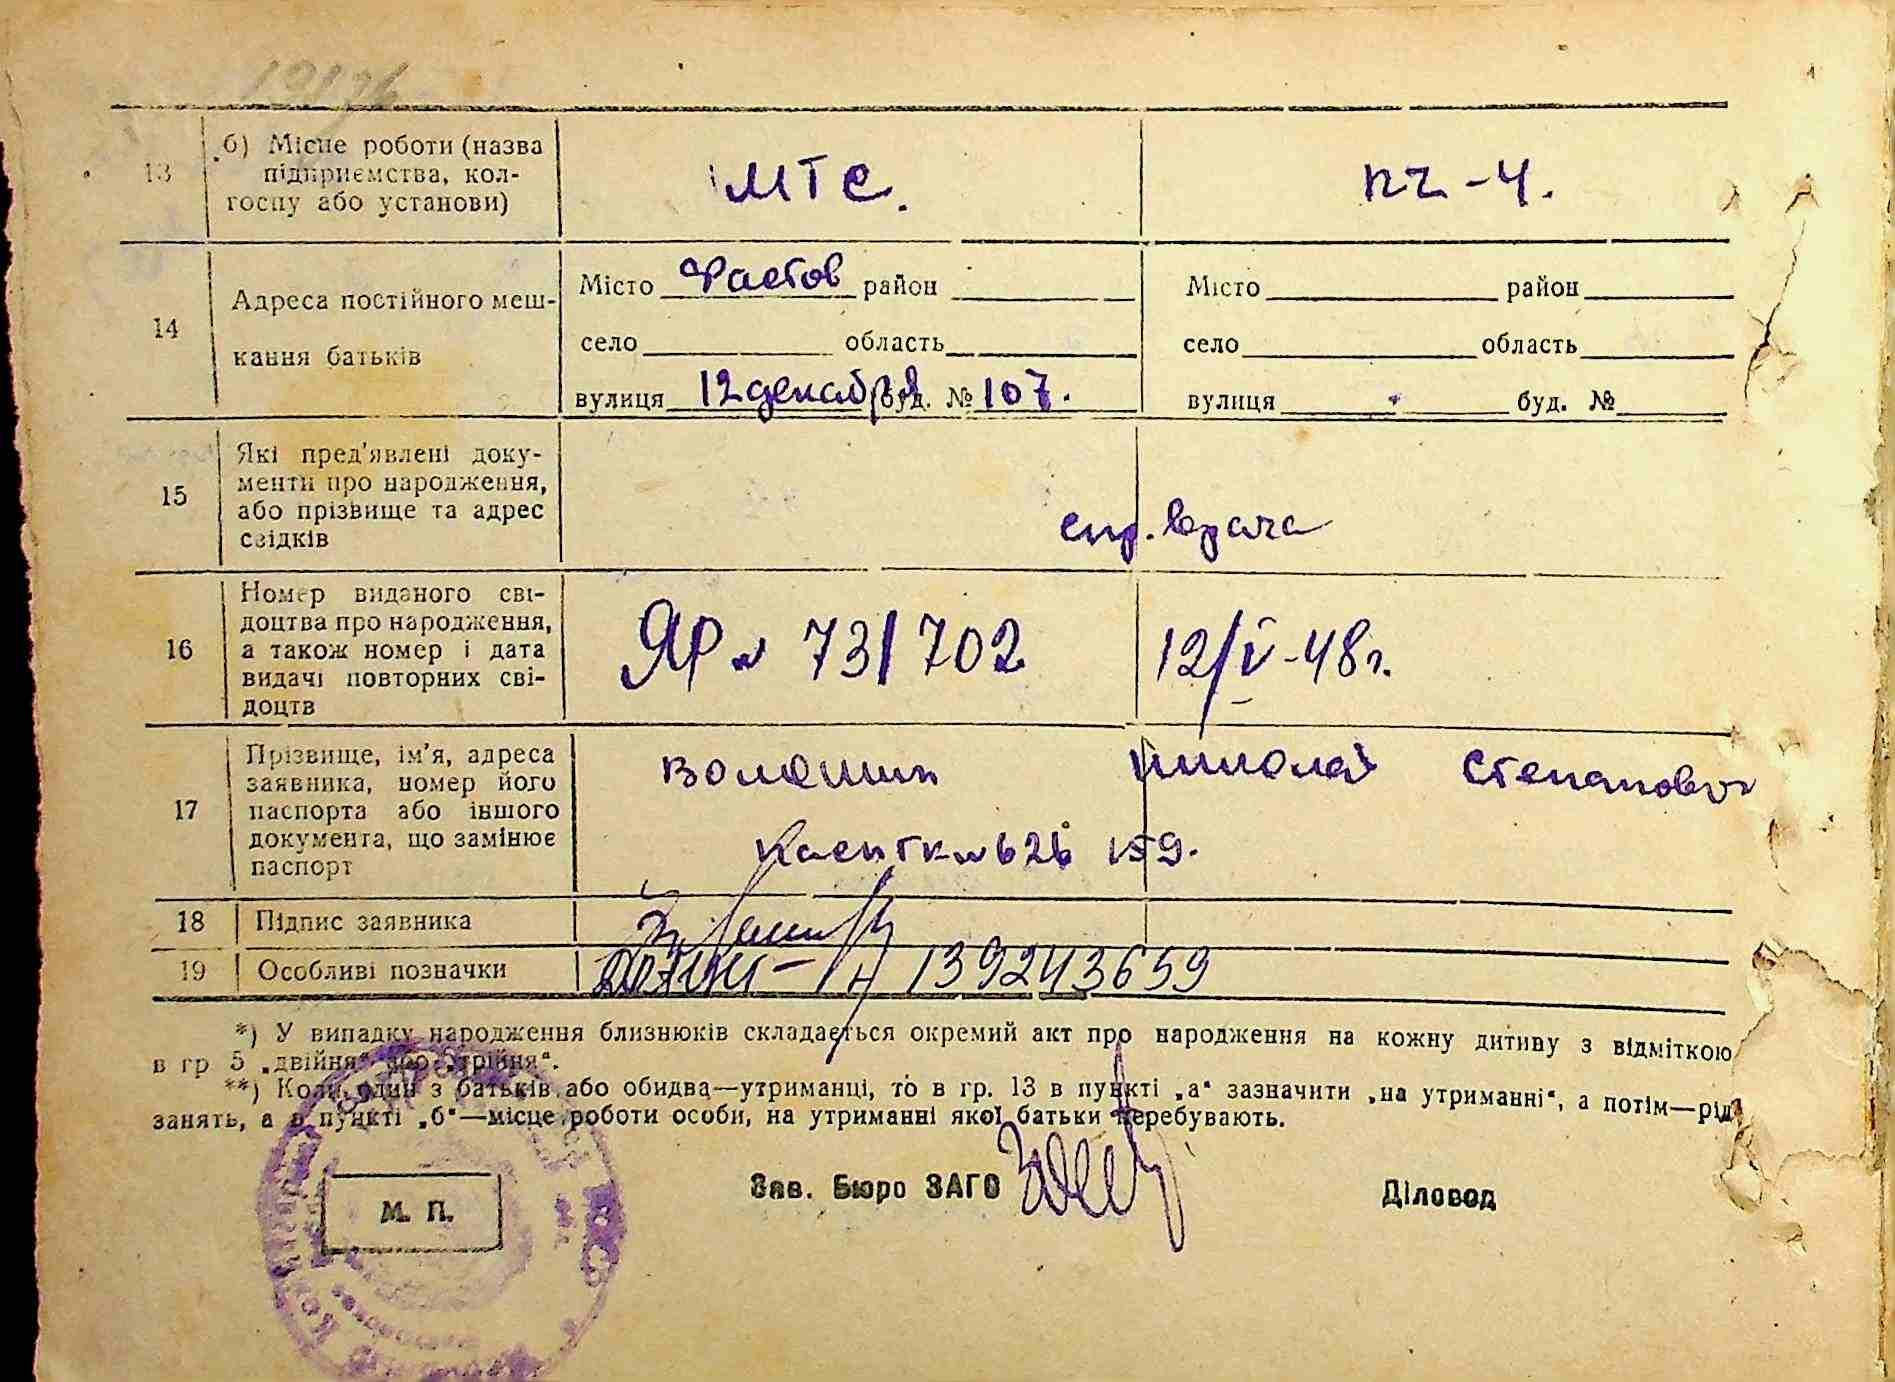 13 б) Місце роботи (назва
підприємства, кол-
госпу або установи)
МТС. ПЧ-4.
14 Адреса постійного меш-
кання батьків
Місто Фастов район Місто район
село область село область
вулиця 12 декабря буд. № 107. вулиця буд. №
15 Які пред'явлені доку-
менти про народження,
або прізвище та адрес
свідків
спр. врача
16 Номер виданого сві-
доцтва про народження,
а також номер і дата
видачі повторних сві-
доцтв
ЯР № 731702 12/V-48 г.
17 Прізвище, ім'я, адреса
заявника, номер його
паспорта або іншого
документа, що замінює
паспорт
Волошин Николай Степанович
18 Підпис заявника
19 Особливі позначки
139243659
*) У випадку народження близнюків складається окремий акт про народження на кожну дитину з відміткою
в гр 5 „двійня“ або „трійня“.
**) Коли один з батьків або обидва—утриманці, то в гр. 13 в пункті „а“ зазначити „на утриманні“, а потім—рід
занять, а в пункті „б“—місце роботи особи, на утриманні якої батьки перебувають.
М. П.
Зав. Бюро ЗАГС Діловод